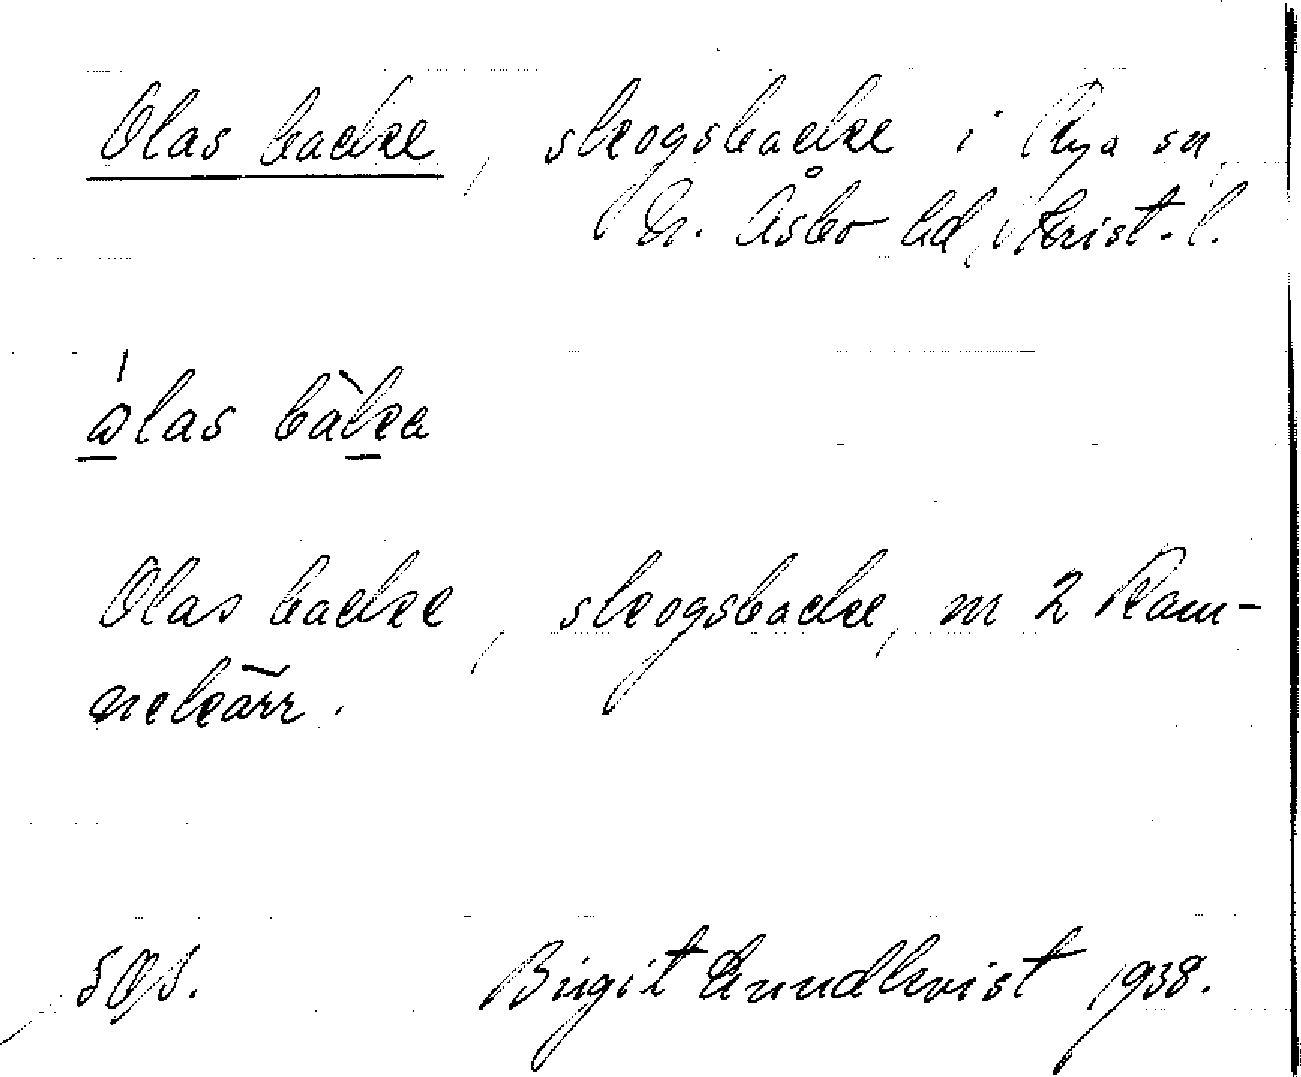 Olas backe, skogsbacke i Rya sn,
N. Åsbo hd, Krist. l.
olas bàka
Olas backe, skogsbacke, m 2 Ram-
nekärr.
SOS. Birgit Lundkvist 1938.